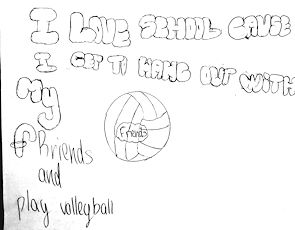 I LOVE SCHOOL CAUSE
I GET TO HANG OUT WITH
My
friends
Friends
and
play volleyball